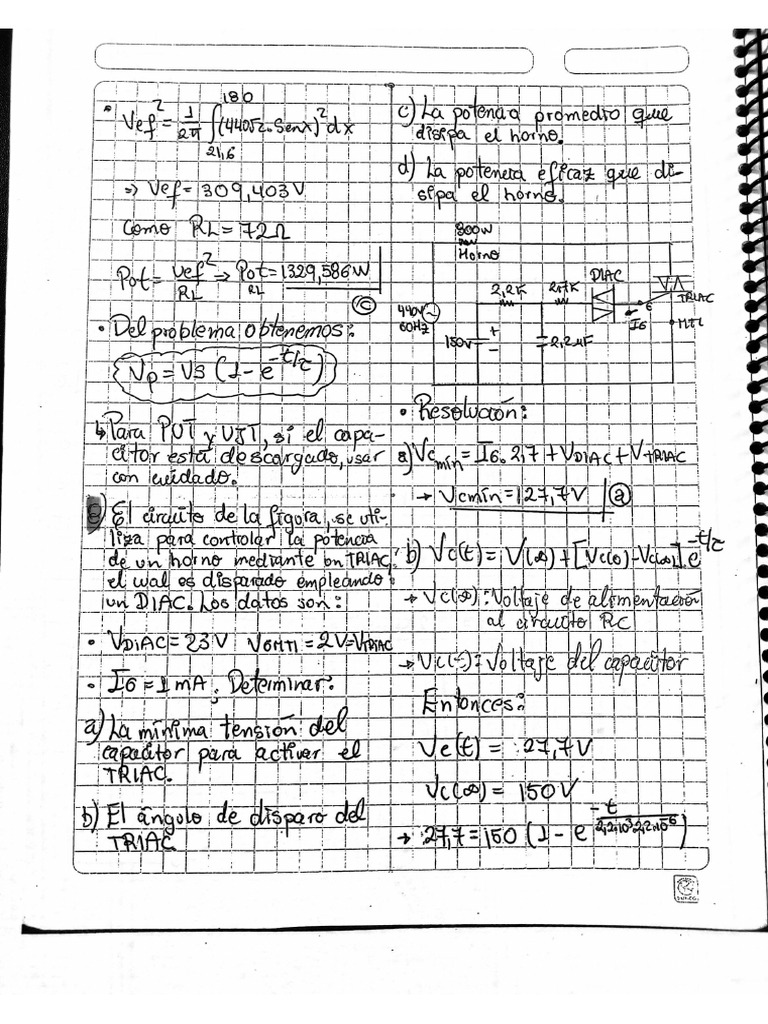 • Vef² = 1/2π ∫ 21,6 180 (440√2. Senx)² dx
⇒ Vef = 309,403V
Como RL = 72Ω
Pot RL = Vef²/RL ⇒ Pot RL = 1329,586W
(C)
• Del problema obtenemos:
Vp = VB (1 - e^-t/τ)
↳ Para PUT y UJT, si el capa-
citor está descargado, usar
con cuidado.
El circuito de la figura, se uti-
liza para controlar la potencia
de un horno mediante un TRIAC,
el cual es disparado empleando
un DIAC. Los datos son:
• VDIAC = 23V VGMT1 = 2V = VTRIAC
• IG = 1mA; Determinar:
a) La mínima tensión del
capacitor para activar el
TRIAC.
b) El ángulo de disparo del
TRIAC
c) La potencia promedio que
disipa el horno.
d) La potencia eficaz que di-
sipa el horno.
800W
Horno
DIAC
2,2K 2,7K
TRIAC
440V
60HZ
G
IG
MT1
150V
+
−
2,2µF
• Resolución:
a) Vcmín = IG. 2,7 + VDIAC + VTRIAC
→ Vcmín = 27,7V (a)
b) Vc(t) = V(∞) + [Vc(0) - Vc(∞)] e^-t/τ
→ Vc(∞): Voltaje de alimentación
al circuito RC
→ Vc(-): Voltaje del capacitor
Entonces:
Vc(t) = 27,7V
Vc(∞) = 150V
→ 27,7 = 150 (1 - e^-t/2,2.10³.2,2.10⁻⁶)